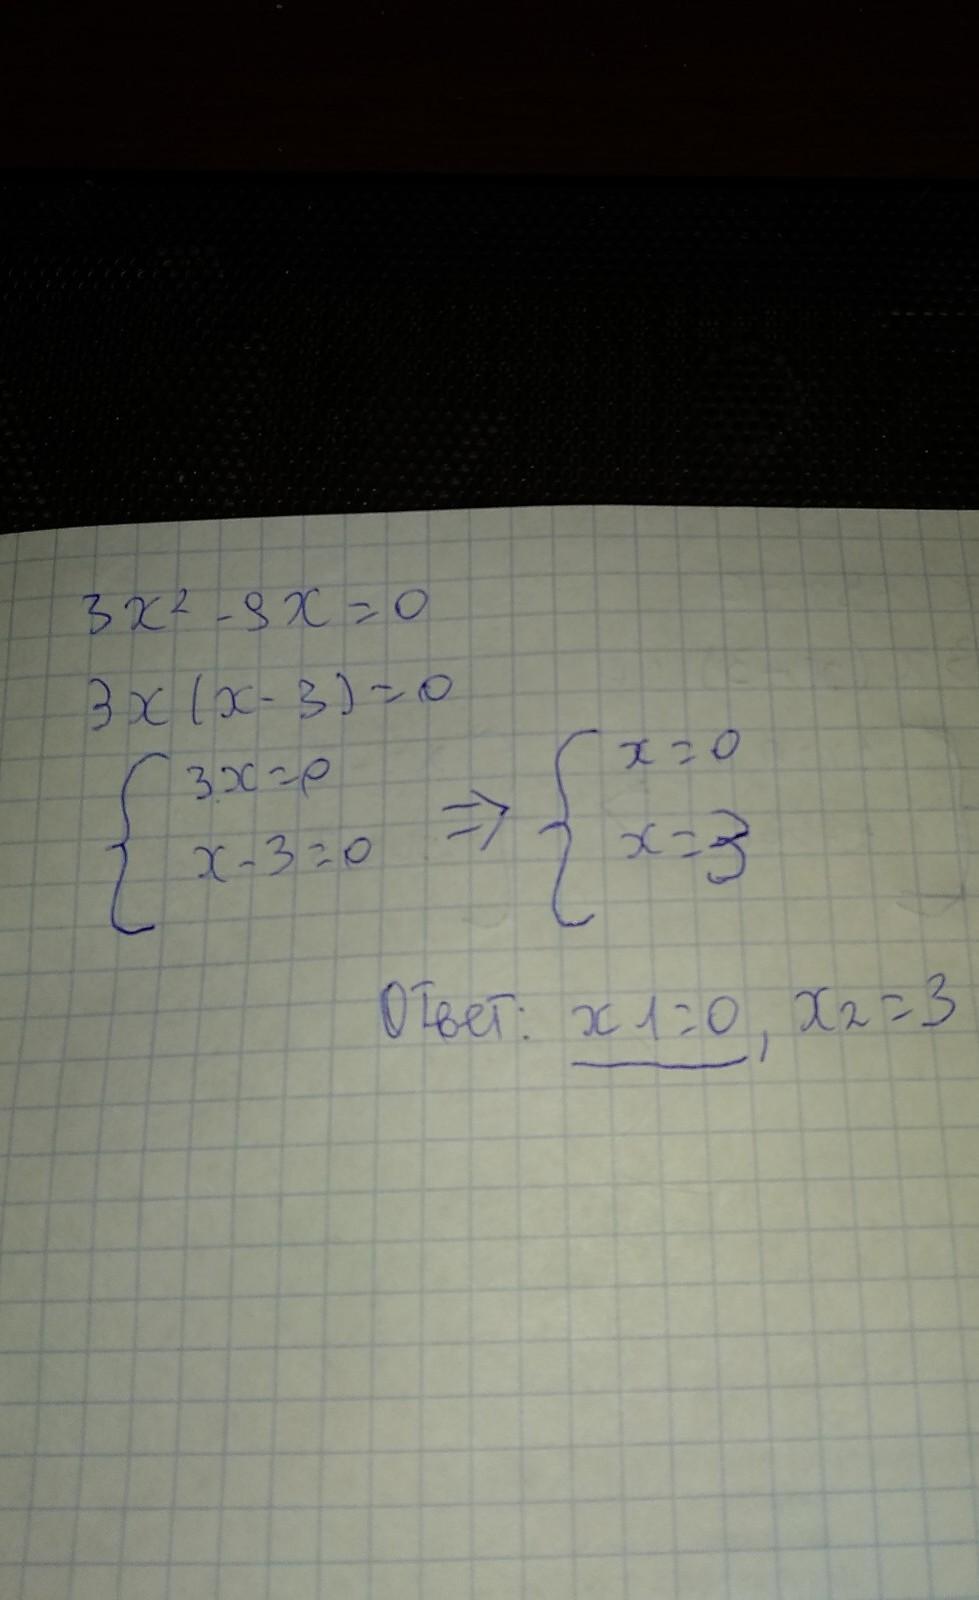 3x² - 9x = 0
3x(x - 3) = 0
{ 3x = 0 ⇒ { x = 0
x - 3 = 0 x = 3
Ответ: x1 = 0, x2 = 3